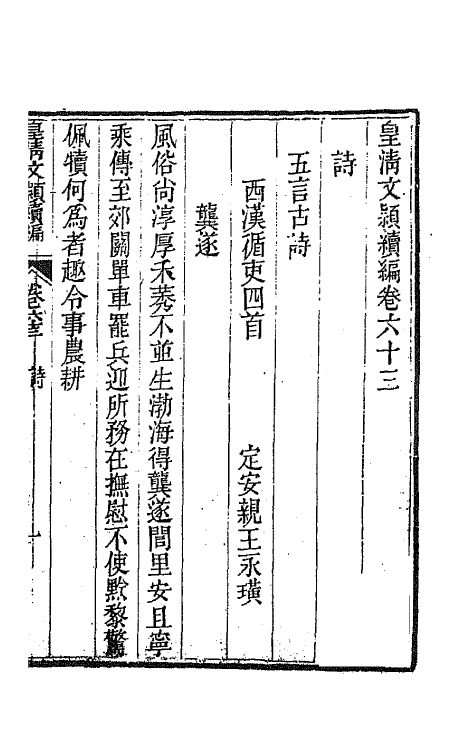 皇清文頴續編卷六十三
詩
五言古詩
西漢循吏四首　定安親王永璜
龔遂
風俗尚淳厚禾莠不並生渤海得龔遂閭里安且寧
乘傳至郊關單車罷兵迎所務在撫慰不使黔黎驚
佩犢何爲者趣令事農耕
皇清文頴續編　卷六十三　詩